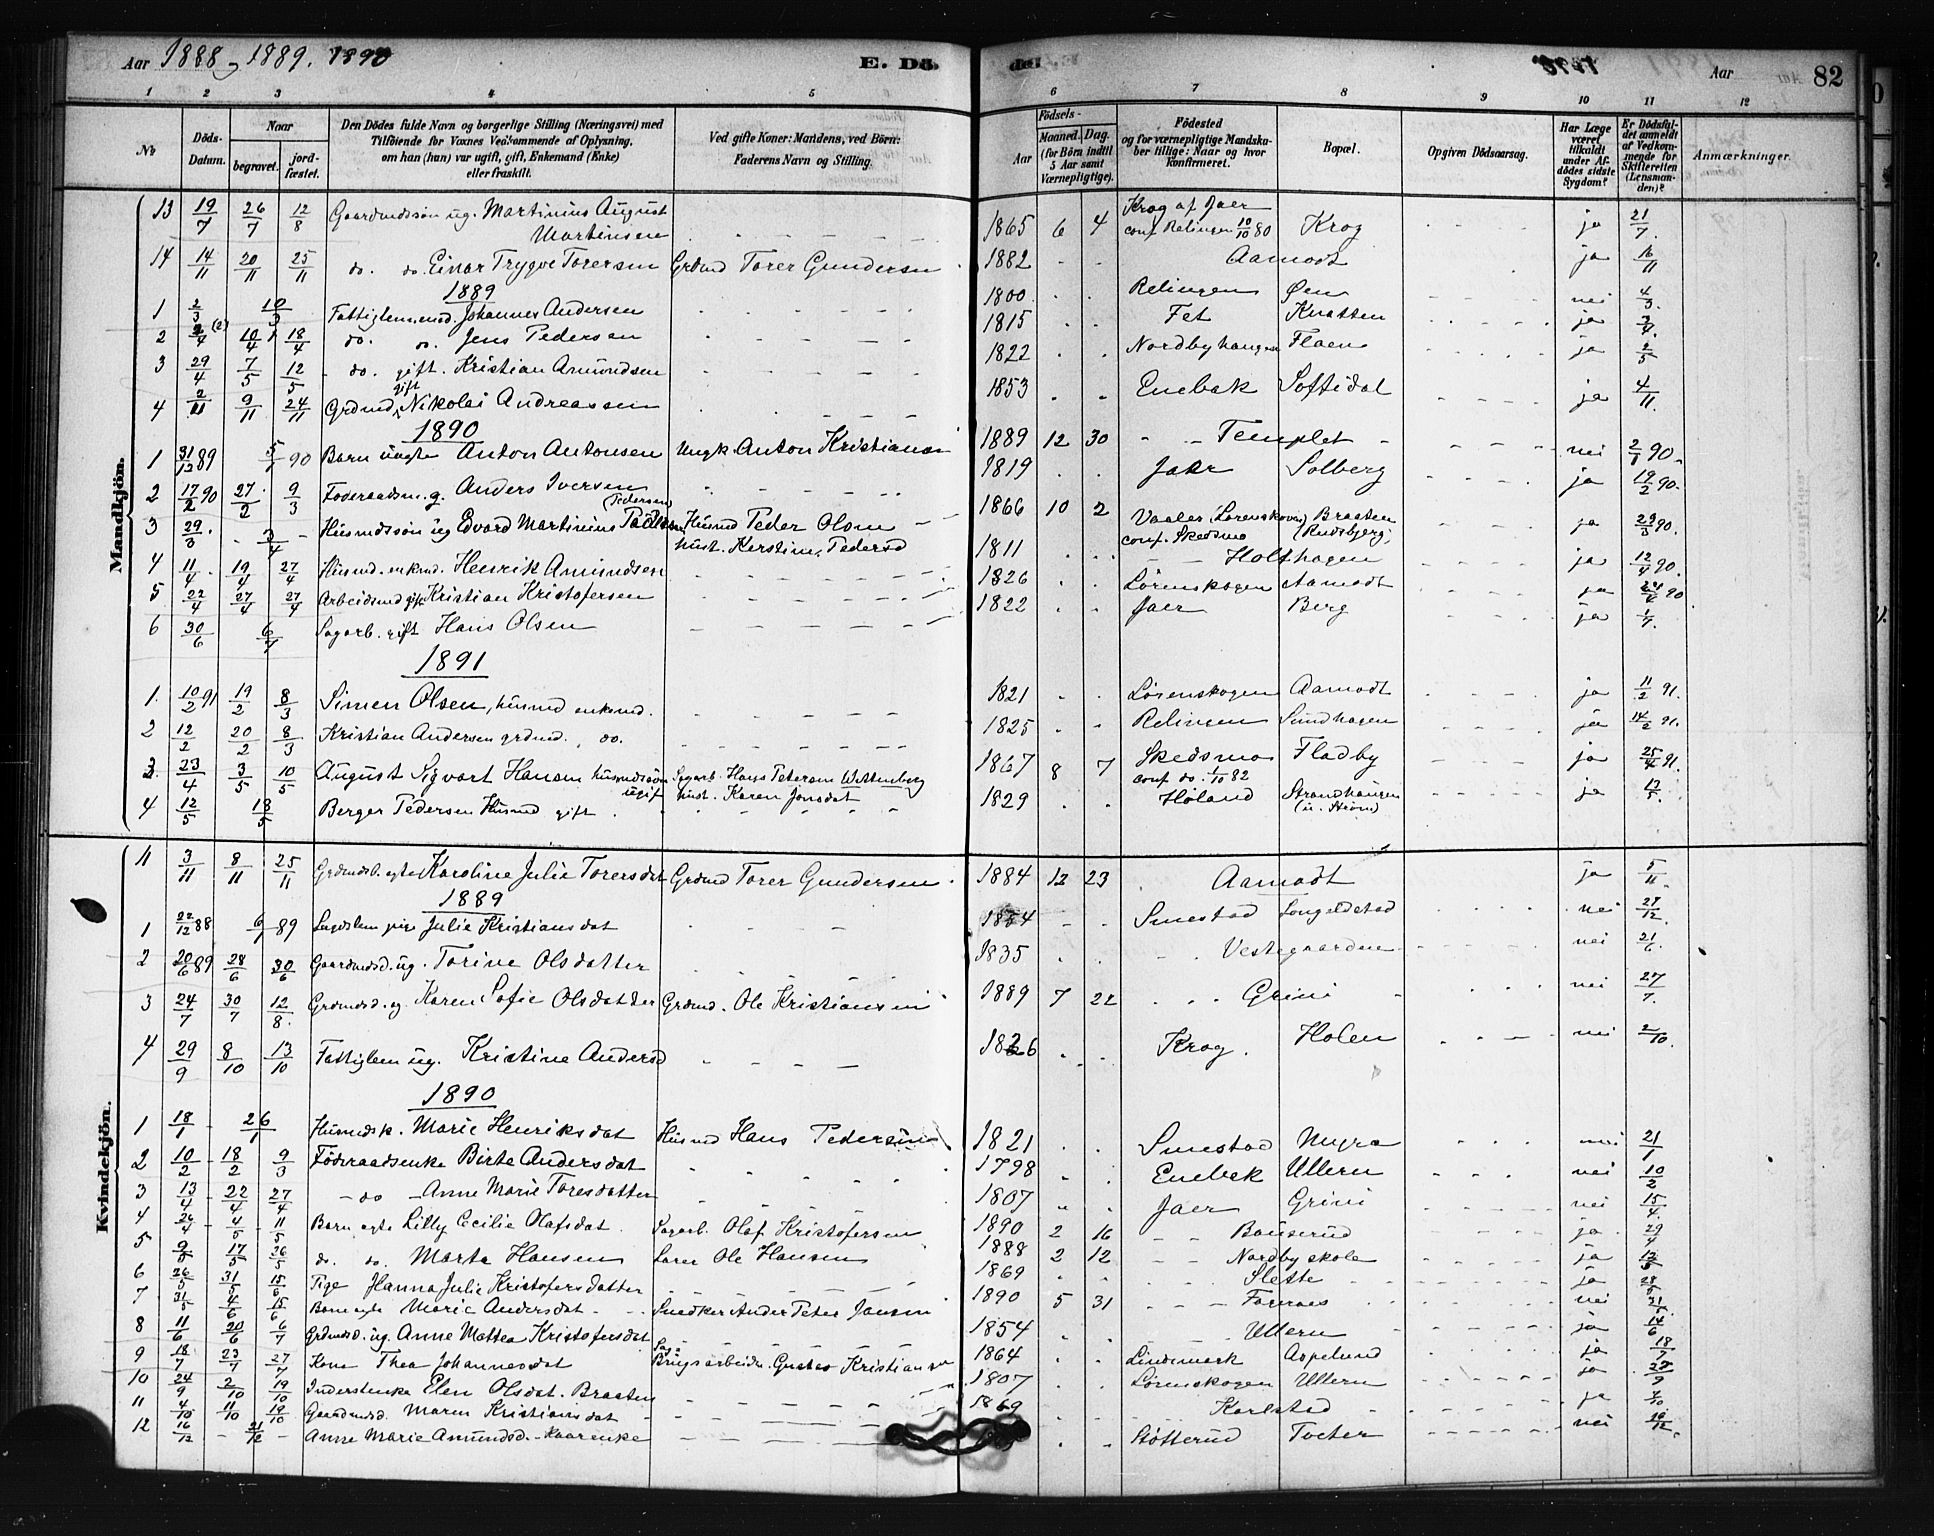 Aar 1888, 1889. 1890
E. Dö- de. Aar 82
1 2 3 4 5 6 7 8 9 10 11 12
No Döds-Datum. Naar begravet. jord-fæstet. Den Dödes fulde Navn og borgerlige Stilling (Næringsvei) med Tilföiende for Voxnes Vedkommende af Oplysning, om han (hun) var ugift, gift, Enkemand (Enke) eller fraskilt. Ved gifte Koner: Mandens, ved Börn: Faderens Navn og Stilling. Födsels- Aar Maaned. Dag. (for Börn indtil 5 Aar samt Værnepligtige). Födested og for værnepligtige Mandskaber tillige: Naar og hvor konfirmeret. Bopæl. Opgiven Dödsaarsag. Har Læge været tilkaldt under Afdödes sidste Sygdom? Er Dödsfaldet anmeldt af Vedkommende for Skifteretten (Lensmanden)? Anmærkninger.
Mandkjön.
13 19/7 26/7 12/8 Gaardmdssön ug. Martinius August Martinsen 1865 6 4 Krog af Jaer conf Relingen 10/10 80 Krog ja 21/7.
14 14/11 20/11 25/11 do. do. Einar Trygve Torersen Grdmd Torer Gundersen 1882 Aamodt ja 16/11
1889
1 2/3 10/3 Johannes Andersen 1800 Relingen Øen nei 4/3.
2 2/4 (2) 10/4 18/4 do. do. Jens Pedersen 1815 Fet Knatten ja 3/4.
3 29/4 7/5 12/5 do. gift. Kristian Amundsen 1822 Nordbyhaugen Flaen ja 2/5
4 2/11 9/11 24/11 Grdmd gift Nikolai Andreassen 1853 Enebak Softidal ja 4/11.
1890
1 31/12 89 5/1 90 Barn uægte Anton Antonsen Ungk. Anton Kristiansen 1889 12 30 Templet nei 2/1 90.
2 17/2 90 27/2 9/3 Föderaadsm. g. Anders Iversen 1819 Jaer Solberg ja 19/2 90.
3 29/3. 3/4 Husmdssön ug Edvard Martinius Paulsen (Pedersen) Husmd Peder Olsen hust. Kerstine Pedersd 1866 10 2 Vaaler (Lørenskoven) conf. Skedsmo Braaten (Rudsbjerg) ja 23/3 90.
4 11/4. 19/4 27/4 Husmd. enkmd. Henrik Amundsen 1811 Holthagen ja 12/4 90.
5 22/4 27/4 27/4 Arbeidsmd gift Kristian Kristofersen 1826 Lørenskogen Aamodt ja 24/4 90
6 30/6 6/7 Sagarb. gift Hans Olsen 1822 Jaer Berg ja 1/7.
1891
1. 10/2 91 19/2 8/3 Simen Olsen, husmd enkemd. 1821 Lørenskogen Aamodt ja 11/2 91.
2 12/2 20/2 8/3 Kristian Andersen grdmd., do. 1825 Relingen Sundhagen ja 14/2 91.
3. 23/4 3/5 10/5 August Sigvart Hansen husmdssön ugift Sagarb. Hans Petersen Wettenberg hust. Karen Jonsdat 1867 8 7 Skedsmo conf do. 1/10 82 Fladby ja 25/4 91.
4 12/5 18/5 Berger Pedersen Husmd gift 1829 Høland Strandhaugen (u. Strøm) ja 13/5.
Kvindekjön.
11 3/11 8/11 25/11 Grdmdsb. ægte Karoline Julie Torersdat Grdmd Torer Gundersen 1884 12 23 Aamodt ja 5/11.
1889
1 22/12 88 6/1 89 Julie Kristiansdat Smestad Longeldstad nei 27/12.
2 20/6 89 28/6 30/6 Gaardmdsd. ug. Torine Olsdatter 1835 Vestegaarden nei 21/6.
3 24/7 30/7 12/8. Grdmdsd. eg. Karen Sofie Olsdatter Grdmd. Ole Kristiansen 1889 7 22 Grini nei 27/7.
4 29/9 8/10 13/10 Fattiglem ug. Kristine Andersd Krog. Holen nei 2/10.
1890
1 18/1 26/1 Husmdsk. Marie Henriksdat Husmd Hans Pedersen 1821 Smestad Myra nei 21/1
2 10/2 18/2 9/3 Föderaadsenke Birte Andersdat 1798 Enebak Ullern nei 10/2
3 13/4 22/4 27/4 do Anne Marie Toresdatter 1807 Jaer Grini nei 15/4.
4 26/4 4/5 11/5 Barn egte Lilly Cecilie Olafsdat. Sagarb. Olaf Kristofersen 1890 2 16 Bøuserud ja 29/4
5 9/5 17/5 26/5 do. do. Marta Hansen Lærer Ole Hansen 1888 2 12 Nordby skole ja 12/5
6 26/5 31/5 15/6 Pige Hanna Julie Kristofersdatter 1869 Slette ja 28/5
7 31/5 4/6 15/6 Barn egte Marie Andersdat Snedker Ander Peter Jansen 1890 5 31 nei
8 11/6 20/6 6/7 Grdmdsd. ug. Anne Mathea Kristofersdat 1854 Ullern ja 14/6
9 18/7 23/7 27/7 Kone Thea Johannesdat Sag= Brugsarbeider Gustav Kristiansen 1864 Lindemark Aspelund ja 18/7
10 24/9 2/10 19/10 Inderstenke Elen Olsdat. Braaten 1807 Lørenskogen Ullern ja 27/9
11 4/10 11/10 19/10 Gaardmdsd. Maren Kristiansdat 1869 Karlstad ja 7/10.
12 16/12 21/12 Anne Marie Amundsd. Støtterud Toeter nei